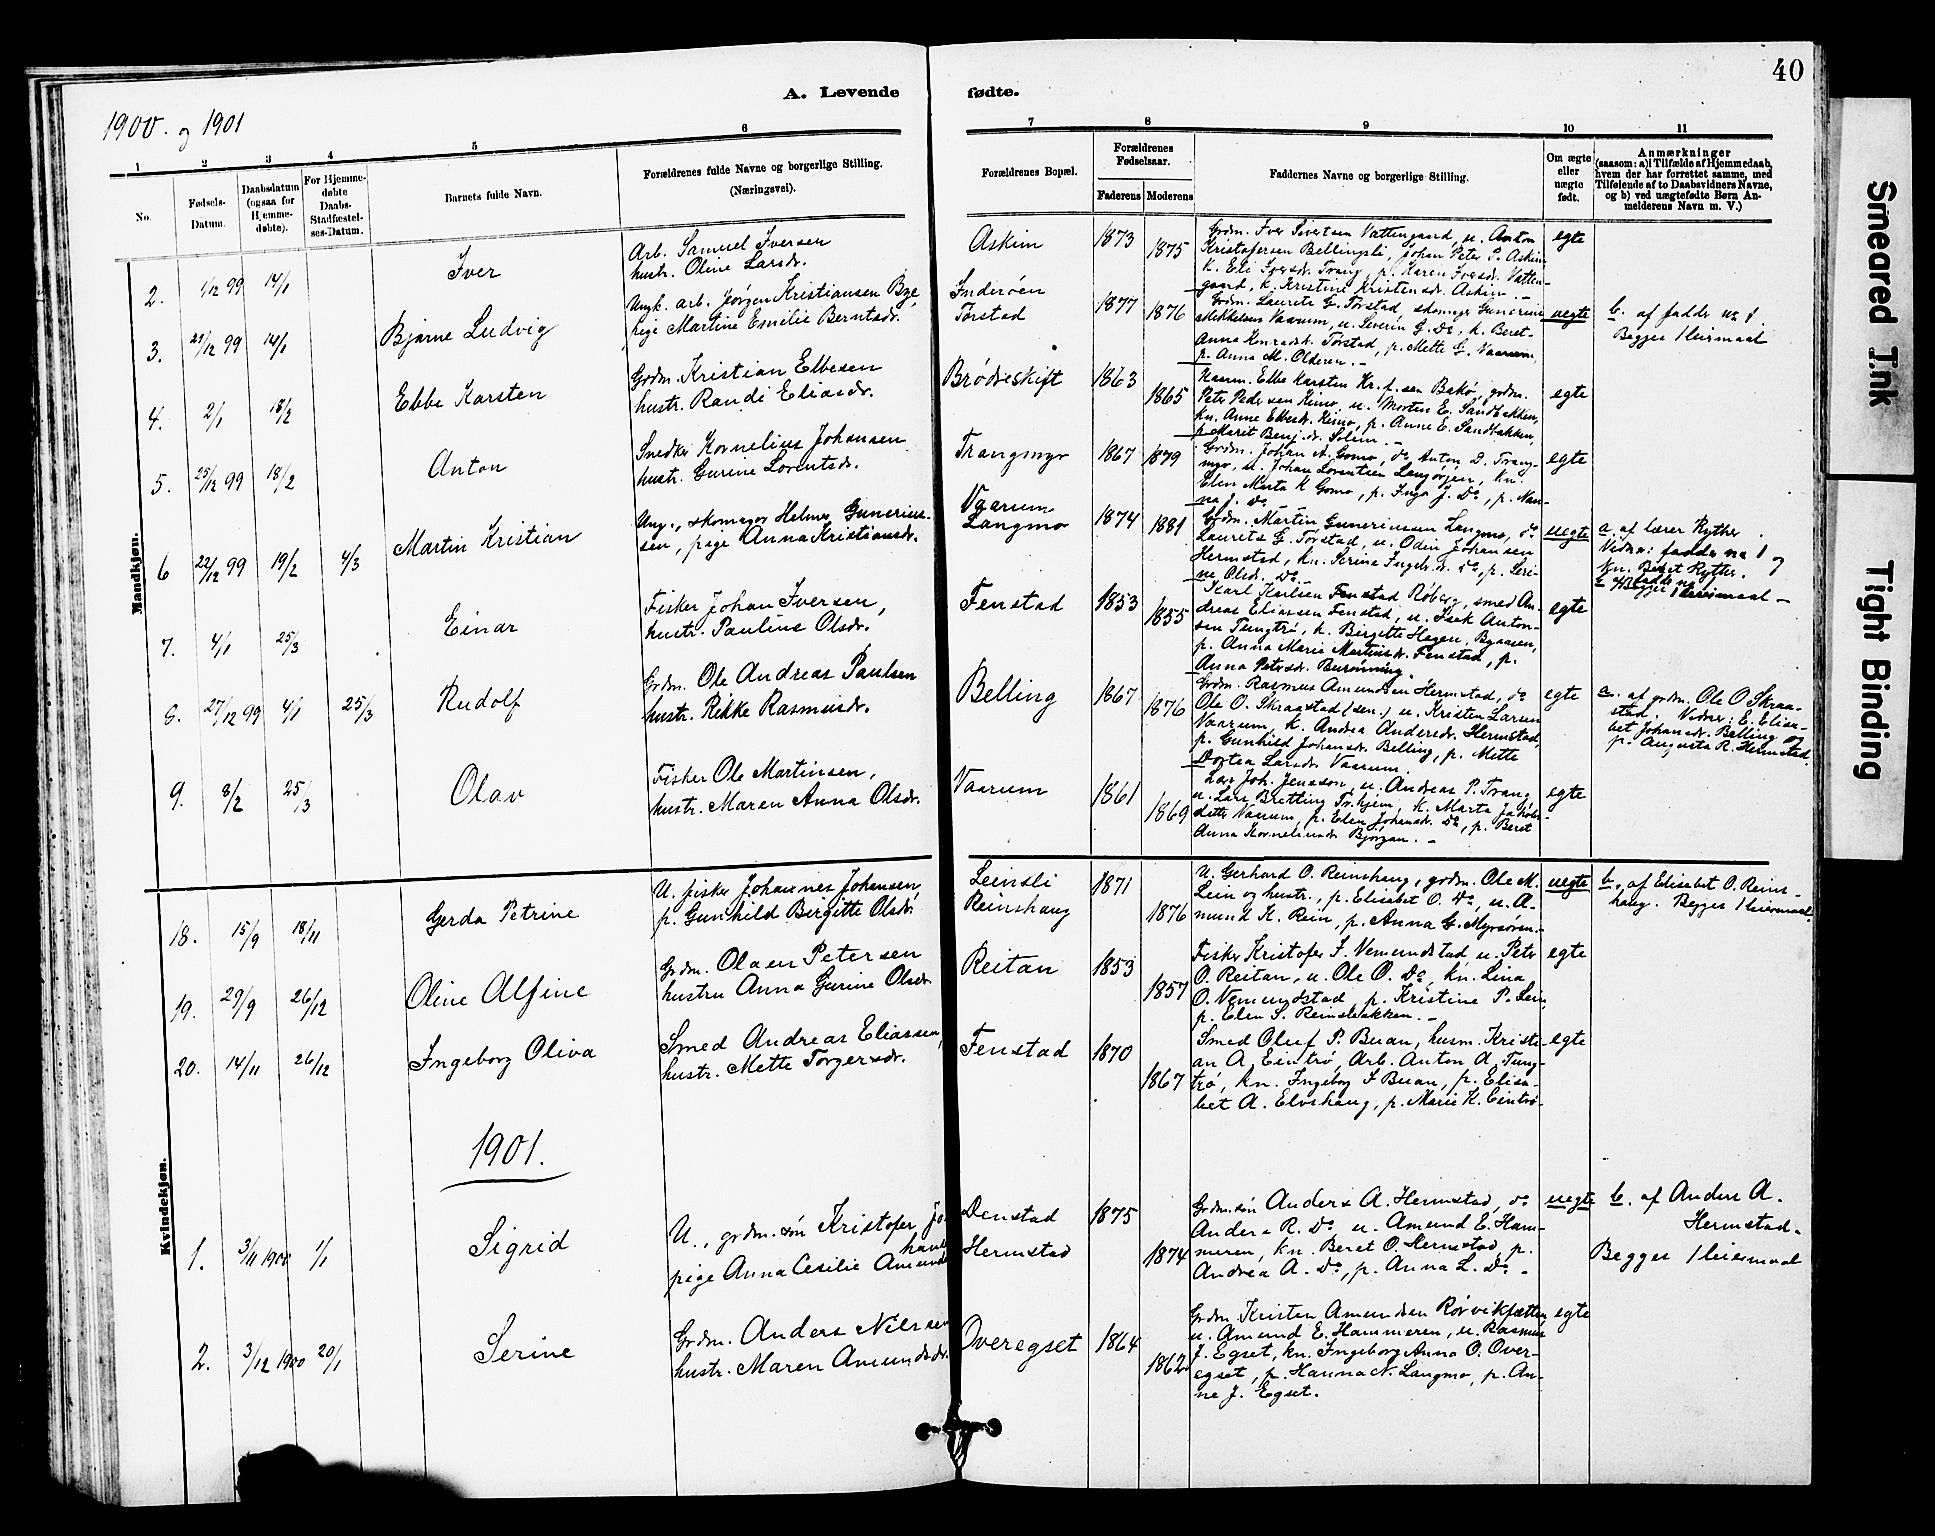 40
A. Levende fødte.
1900. og 1901
1 2 3 4 5 6 7 8 9 10 11
No.
Fødsels-Datum.
Daabsdatum (ogsaa for Hjemme-døbte).
For Hjemme-døbte Daabs-Stadfæstel-ses-Datum.
Barnets fulde Navn.
Forældrenes fulde Navne og borgerlige Stilling. (Næringsvei).
Forældrenes Bopæl.
Forældrenes Fødselsaar.
Faderens Moderens
Faddernes Navne og borgerlige Stilling.
Om ægte eller uægte født.
Anmærkninger
(saasom: a) i Tilfælde af Hjemmedaab, hvem der har forrettet samme, med Tilføiende af to Daabsvidners Navne, og b) ved uægtefødte Børn An-melderens Navn m. V.)
Mandkjøn.
2. 1/12 99 14/1 Iver
Arb. Samuel Iversen
hustr. Oline Larsdr.
Askim 1873 1875
Grdm. Iver Sivertsen Vattengaard, u. Anton
Kristofersen Bellingsli, Johan Peter P. Askim
k. Eli Iversdr. Trang, p. Karen Iversdr. Vatten-
gaard, k. Kristine Kristensdr. Askim. -
egte
3. 21/12 99 14/1 Bjarne Ludvig
Ungk. arb. Jørgen Kristiansen Bye,
pige Martine Emilie Berntsdr.
Inderøen
Torstad 1877 1876
Grdm. Laurits G. Torstad, skomager Gunerius
Mikkelsen Vaarum, u. Severin G. Do, k. Beret-
Anna Konradsdr. Torstad, p. Mette G. Vaarum,
p. Anna M. Olderen. -
uegte
b. af fadder no 1
Begges 1 leiermaal
4. 2/1 18/2 Ebbe Karsten
Grdm. Kristian Ebbesen
hustr. Randi Eliasdr.
Brødreskift 1863 1865
Peter Pedersen Kimo, u. Morten E. Sandbakken,
kn. Anne Ebbesdr. Kimo, p. Anne E. Sandbakken,
p. Marit Benj.dr. Solem. -
egte
5. 25/12 99 18/2 Anton
Snedker Kornelius Johansen
hustr. Gurine Lorentsdr.
Trangmyr 1867 1879
Grdm. Johan A. Gomo, do Anton D. Trang-
myr, u. Johan Lorentsen Langørjen, kn.
Elen Marta K Gomo, p. Inga J. Do, p. Nan-
na J. Do -
egte
6 22/12 99 19/2 4/3 Martin Kristian
Ungk., skomager Helmer Guneriu-
sen, pige Anna Kristiansdr.
Vaarum
Langmo 1874 1881
Grdm. Martin Guneriussen Langmo, do
Laurits G. Torstad, u. Odin Johansen
Hermstad, kn. Serina Ingebr.dr. Do, p. Seri-
ne Olsdr. Do -
uegte
a. af lærer Rytter.
Vidner: fadder no 1 og
kn. Beret Rytter.
Begges 1 leiermaal -
7. 4/1 25/3 Einar
Fisker Johan Iversen,
hustr. Pauline Olsdr.
Fenstad 1853 1855
Karl Karlsen Fenstad Røberg, smed An-
dreas Eliassen Fenstad, u. Isak Anton-
sen Tungtrø, k. Birgitte Hagen Byaasen,
p. Anna Marie Martinsdr. Fenstad, p.
Anna Petersdr. Burønning.
egte
8. 27/12 99 4/1 25/3 Rudolf
Grdm. Ole Andreas Paulsen
hustr. Rikke Rasmusdr.
Belling 1867 1876
Grdm. Rasmus Amundsen Hermstad, do
Ole O. Skraastad (sen.) u. Kristen Larsen
Vaarum, k. Andrea Andersdr. Hermstad,
p. Gunhild Johansdr. Belling, p. Mette
Dortea Larsdr. Vaarum.
egte
a. af grdm. Ole O Skraa-
stad. Vidner: E. Elisa-
bet Johansdr. Belling og
p. Augusta R. Hermstad.
9. 8/2 25/3 Olav
Fisker Ole Martinsen,
hustr. Maren Anna Olsdr.
Vaarum 1861 1869
Lars Joh. Jensson, u. Andreas P. Trang,
u. Lars Bretting Tr.hjem, k. Marta Jakobs-
datter Vaarum, p. Elen Johansdr. Do, p. Beret
Anna Korneliusdr. Bjørgan. -
egte
Kvindekjøn.
18. 15/9 18/11 Gerda Petrine
U. fisker Johannes Johansen,
p. Gunhild Birgitte Olsdr.
Leinsli
Reinshaug 1871 1876
U. Gerhard O. Reinshaug, grdm. Ole M.
Lein og hustr., p. Elisabet O. Do, u. A-
mund K. Rein, p. Anna G. Myrsøren. -
uegte
b. af Elisabet O. Reins-
haug. Begges 1 leiermaal.
19. 29/9 26/12 Oline Alfine
Grdm. Olaen Petersen
hustru Anna Gurine Olsdr.
Reitan 1853 1857
Fisker Kristofer S. Vemundstad, u. Peter
O. Reitan, u. Ole O. Do, kn. Lina
O. Vemundstad, p. Kristine P. Lein,
p. Elen S. Reinsbakken. -
egte
20. 14/11 26/12 Ingeborg Oliva
Smed Andreas Eliassen,
hustr. Mette Torgersdr.
Fenstad 1870 1867
Smed Oluf P. Buan, husm. Kristi-
an A. Eintrø, Arb. Anton A. Tung-
trø, kn. Ingeborg I Buan, p. Elisa-
bet A. Elvehaug, p. Marie K. Eintrø
egte
1901.
1. 3/11 1900 1/1 Sigrid
U., grdm.søn Kristofer Jo-
pige Anna Cesilie Amunds
Denstad
Hermstad 1875 1874
Grdm.søn Anders A. Hermstad, do
Anders R. Do u. Amund E. Ham-
meren, kn. Beret O. Hermstad, p.
Andrea A. Do, p. Anna L. Do -
uegte
b. af Anders A.
Hermstad.
Begges 1 leiermaal
2. 3/12 1900 20/1 Serine
Grdm. Anders Nilssen
hustr. Maren Amundsdr.
Overegset 1864 1862
Grdm Kristen Amundsen Rørvikfætten
u. Amund E. Hammeren, u. Rasmus
J. Egset, kn. Ingeborg Anna O. Over-
egset, p. Hanna N. Langmo, p. An-
ne J. Egset.
egte
Smeared Ink
Tight Binding